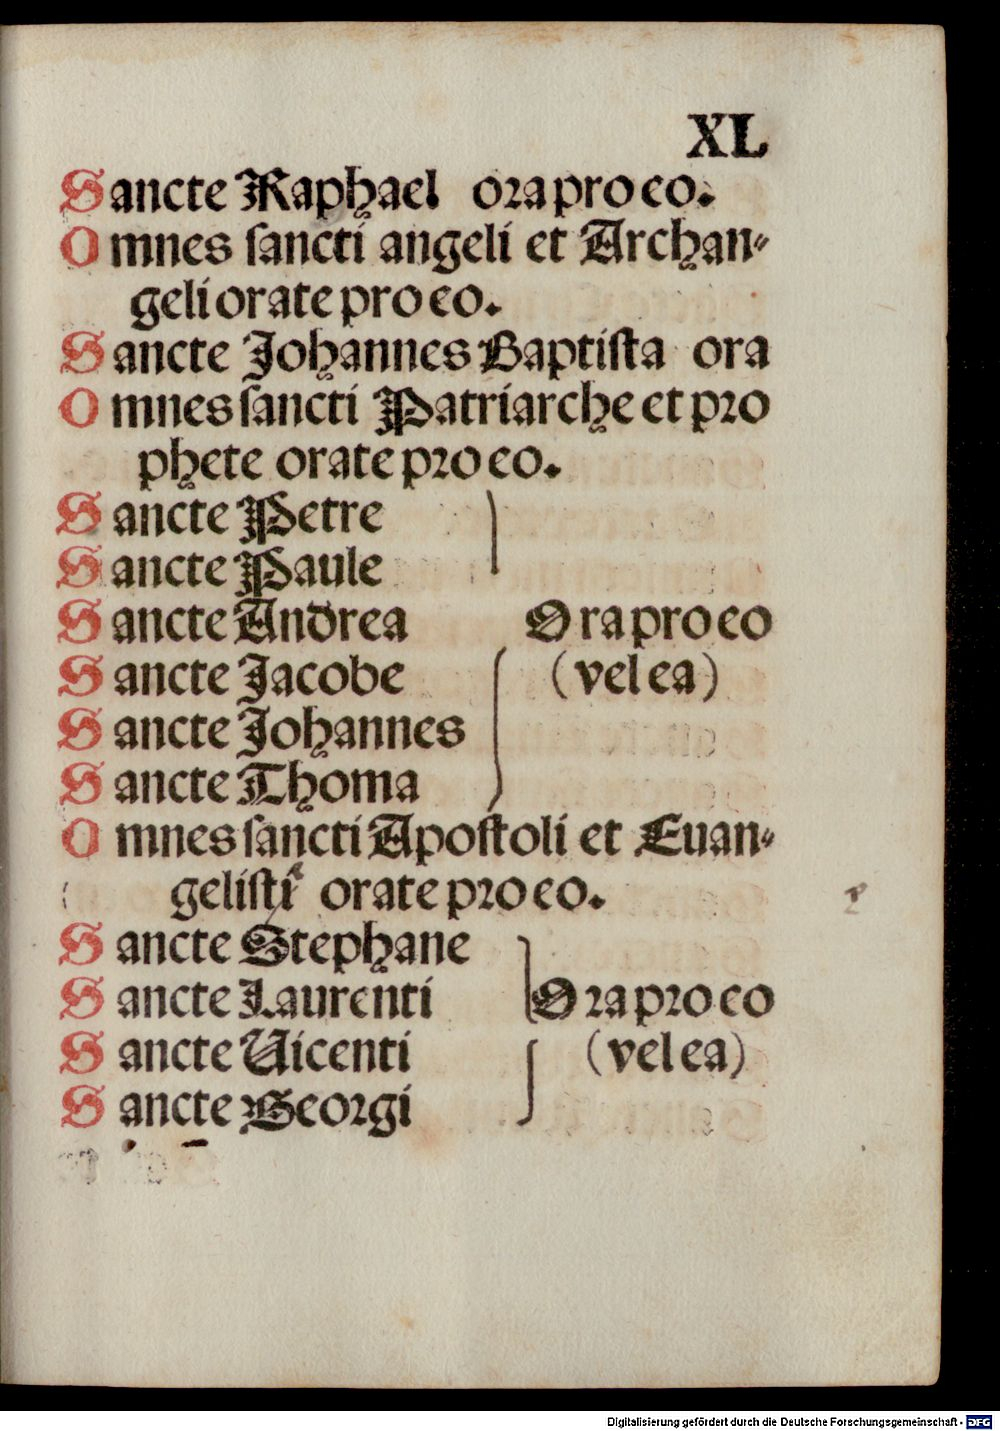 XL
Sancte Raphael ora pro eo.
Omnes sancti angeli et Archan-
geli orate pro eo.
Sancte Johannes Baptista ora
Omnes sancti Patriarche et pro
phete orate pro eo.
Sancte Petre
Sancte Paule
Sancte Andrea Ora pro eo
Sancte Jacobe (vel ea)
Sancte Johannes
Sancte Thoma
Omnes sancti Apostoli et Euan-
gelisti orate pro eo.
Sancte Stephane
Sancte Laurenti Ora pro eo
Sancte Uicenti (vel ea)
Sancte Georgi
Digitalisierung gefördert durch die Deutsche Forschungsgemeinschaft - DFG